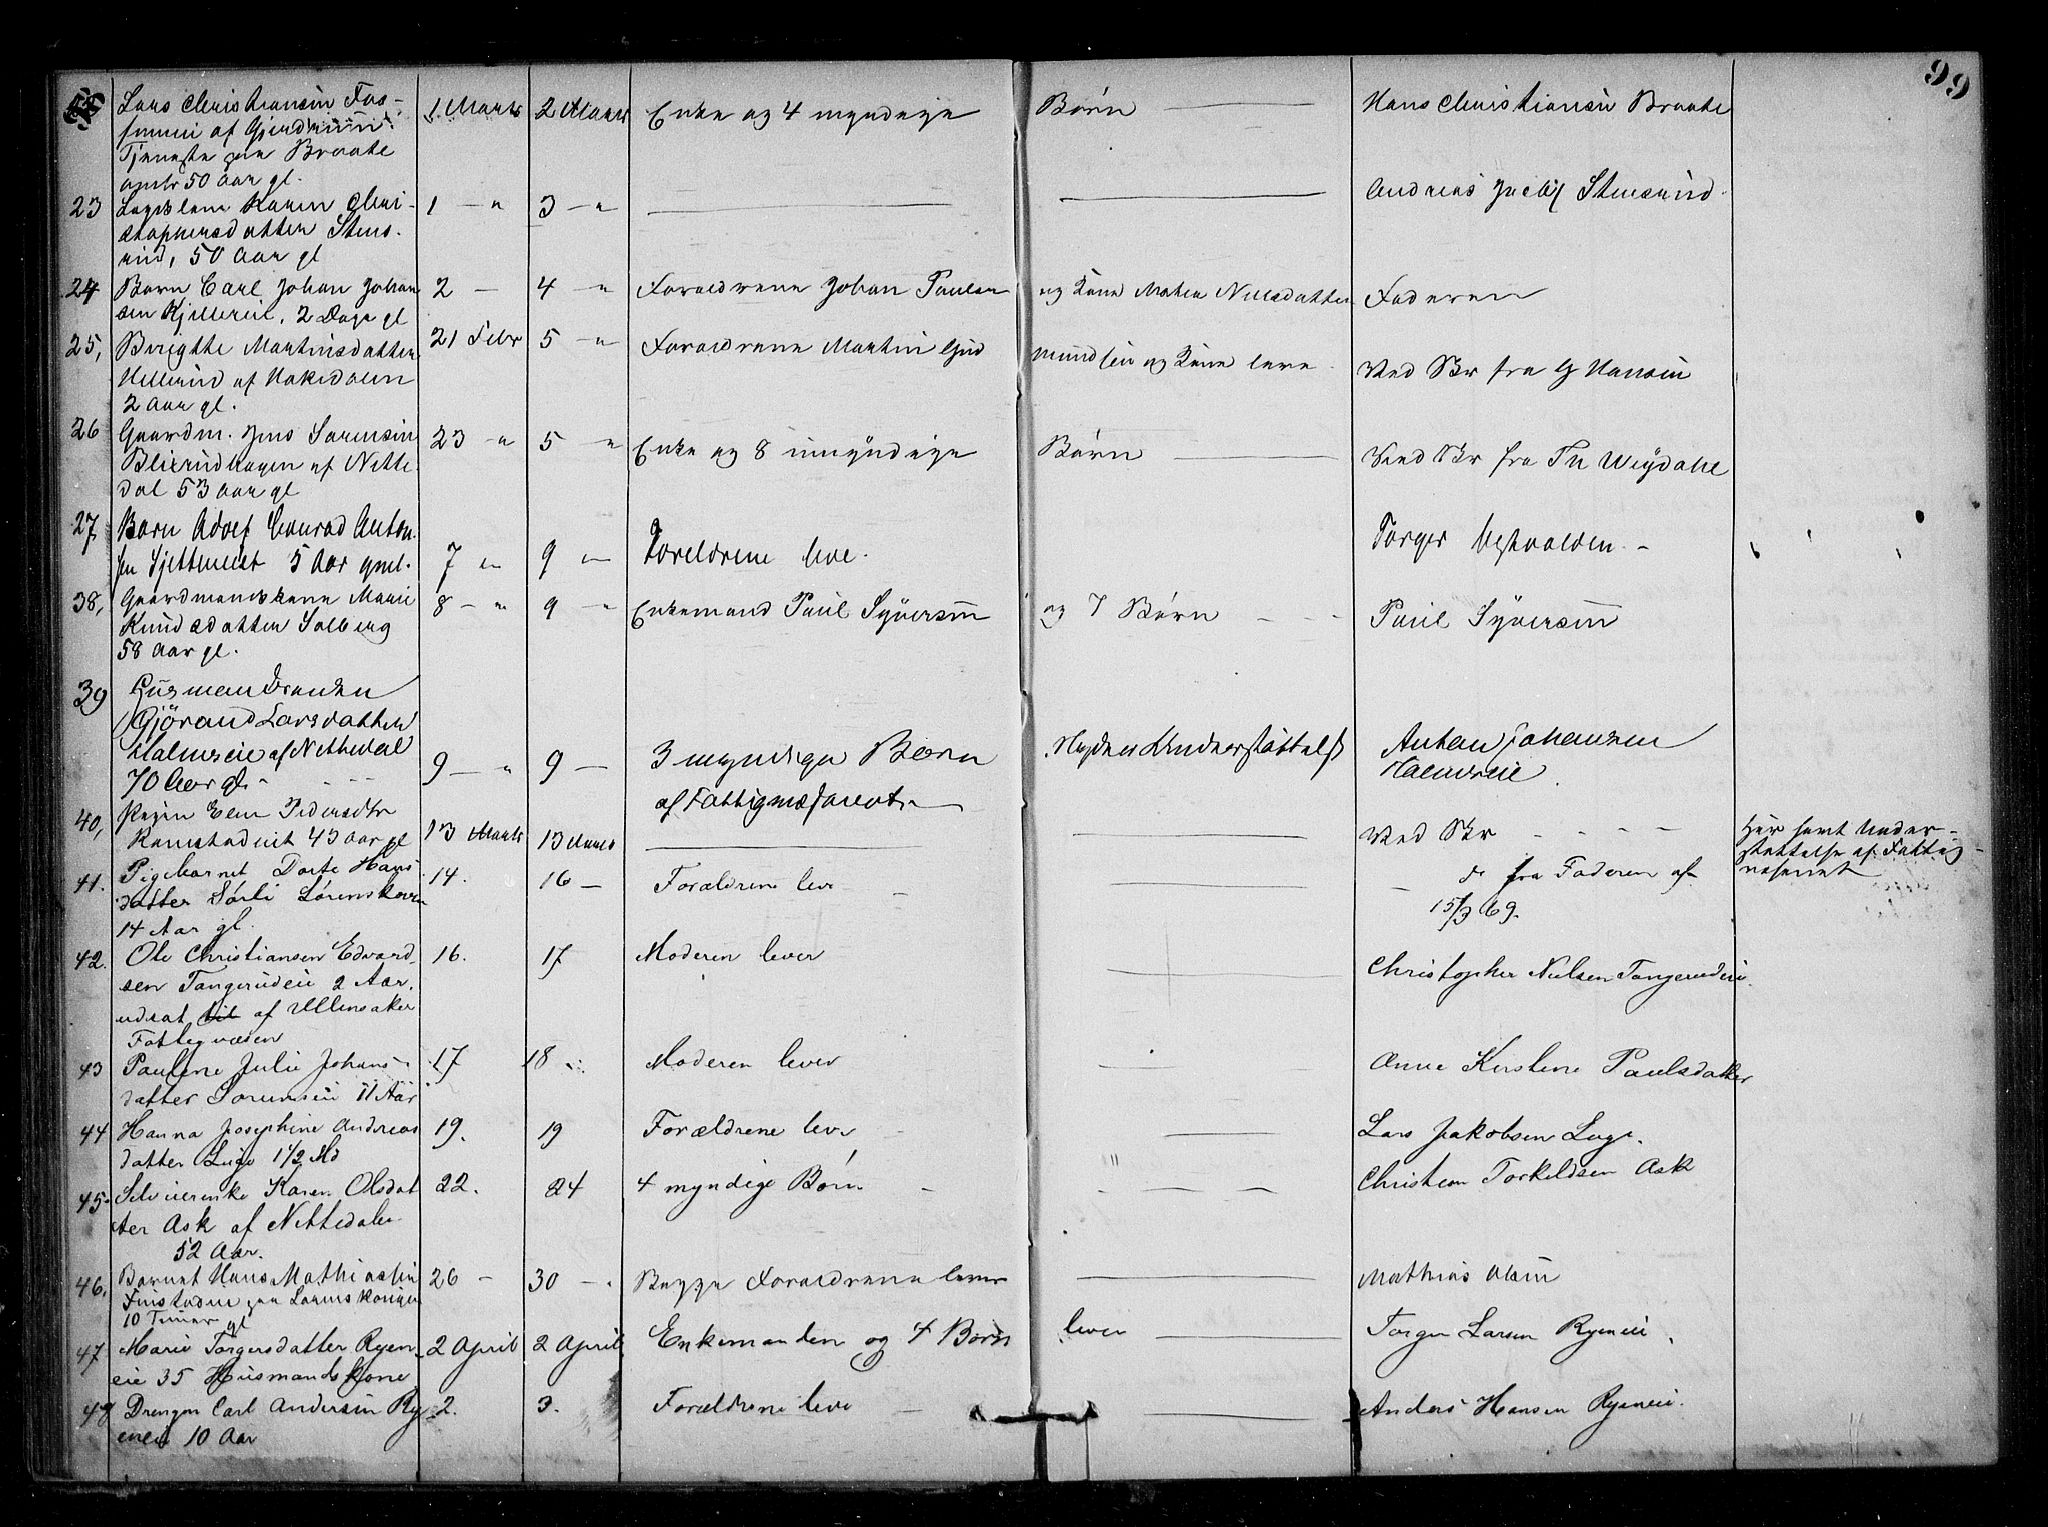 99
Lars Christiansen Fos-
af Gjerdrum
Tjeneste paa Braate
50 Aar gl.
1 Marts
2 Marts
Enke og 4 myndige
Børn
Hans Christiansen Braate
23
Karen Chri-
stophersdatter Stens-
rud, 50 Aar gl
1 — "
3 — "
Andreas Stensrud
24
Barn Carl Johan Johan
sen Kjellerei, 2 Dage gl
2 —
4 — "
Forældrene Johan Paulsen
og Kone Maten Nilsdatter
Faderen
25,
Birgitte Martinsdatter
Hellerud af Hakedalen
2 Aar gl.
21 Febr
5 — "
Forældrene Martin Gud
mundsen og Kone leve
Ved Skr fra G Hansen
26
Gaardm. Jens Sørensen
Bleierudhagen af Nitte
dal 53 Aar gl
23 — "
5 — "
Enke og 8 umyndige
Børn
Ved Skr fra Th Weydahl
27
Barn Adolf Conrad Anton
sen 5 Aar gml.
7 —
9 —
Foreldrene leve.
Torger
38,
Gaardmandskone Marie
Knudsdatter Solberg
58 Aar gl.
8 — "
9 — "
Enkemand Paul Syversen
og 7 Børn
Paul Syversen
39
Husmandsenken
Gjørand Larsdatter
Halmseie af Nittedal
70 Aar gl.
9 — "
9 —
3 myndige Børn
af Fattigvæsenet
Anton Johansen
Halmseie
40,
Pigen Elen Pedersdtr
Ramstadeit 43 Aar gl
13 Marts
13 Marts
Ved Skr
Har havt Under-
støttelse af Fattig-
væsenet
41.
Pigebarnet Dorte Hans
datter Sørli Lørenskoven
14 Aar gl.
14.
16 —
Forældrene leve
— do fra Faderen af
15/3 69.
42.
Ole Christiansen Edvard
sen Tangerudeie 2 Aar.
udsat til af Ullensaker
Fattigvæsen
16.
17
Moderen lever
Christopher Nielsen Tangerudeie.
43
Pauline Julie Johans-
datter Sørumseie 11 Aar
17
18
Moderen lever
Anne Kirstine Paulsdatter
44
Hanna Josephine Andreas
datter Luge 1 1/2 Md
19.
19
Forældrene leve
Lars Jakobsen Luge.
45.
Selveierenke Karen Olsdat
ter Ask af Nittedalen
52 Aar.
22.
24
4 myndige Børn
Christian Torkeldsen Ask
46,
Barnet Hans Mathiassen
Finstadeie paa Lørenskogen
10 Timer gl
26 —
30 —
Begge Forældrene lever
Mathias Olsen
47
Marie Torgersdatter Ryen-
eie 35 Husmandskone
2 April
2 April
Enkemanden og 4 Børn
lever
Torger Larsen Ryeneie
48
Drengen Carl Andersen Ry
eneie 10 Aar
2.
3.
Forældrene leve
Anders Hansen Ryeneie.